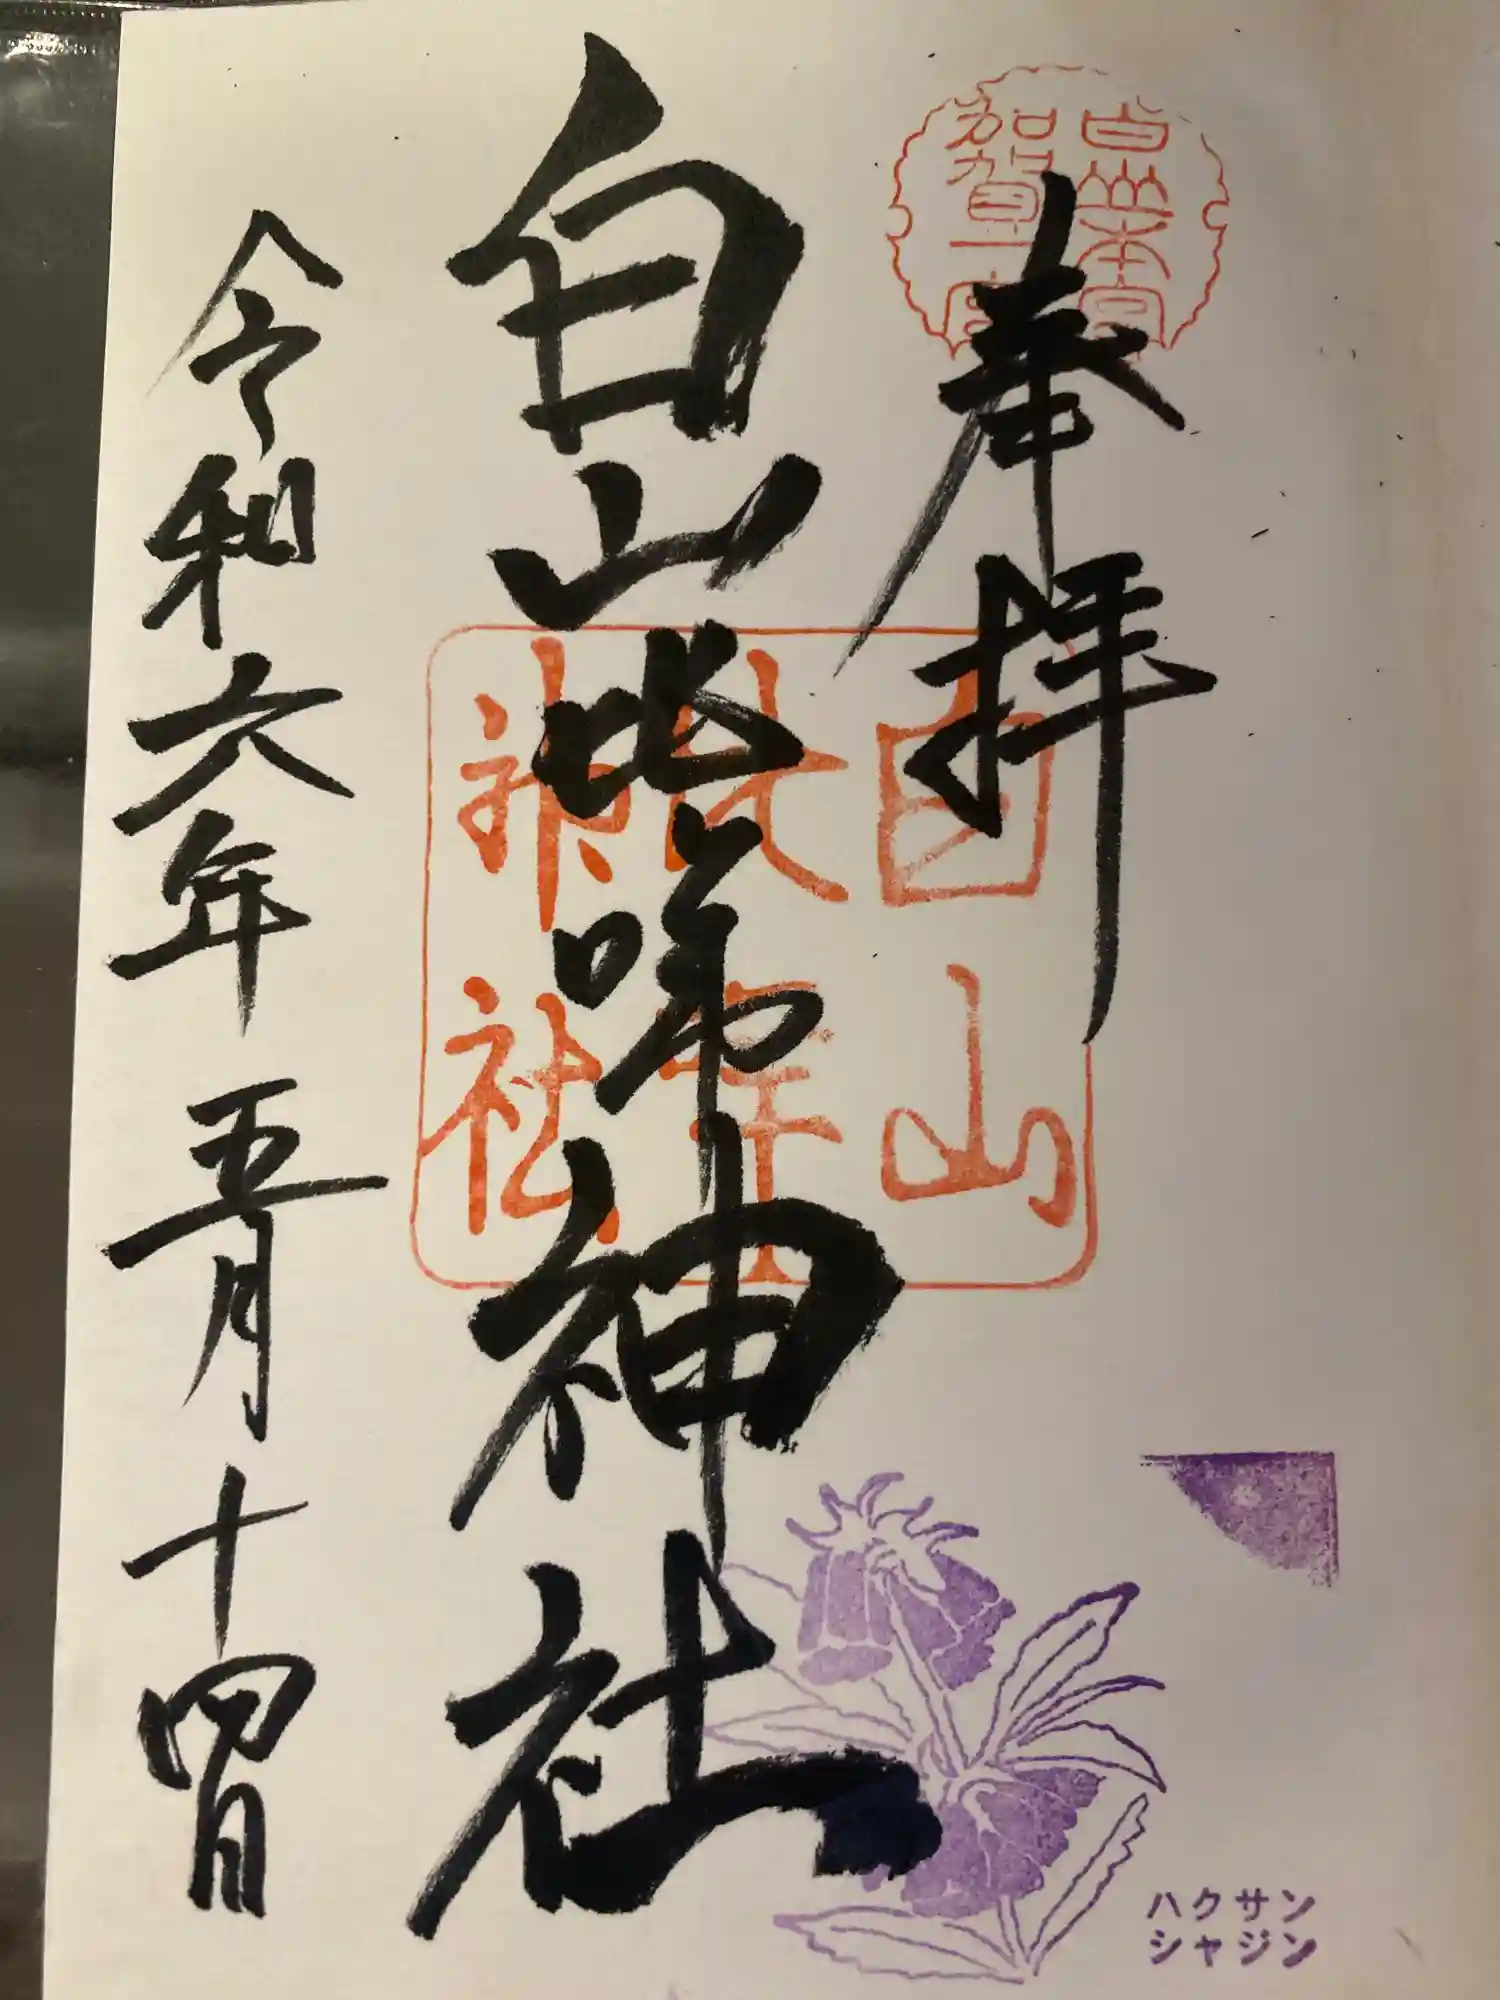 白山本宮
加賀一宮
奉拝
白山比咩神社
白山
比咩
神社
令和六年五月十四日
ハクサン
シャジン